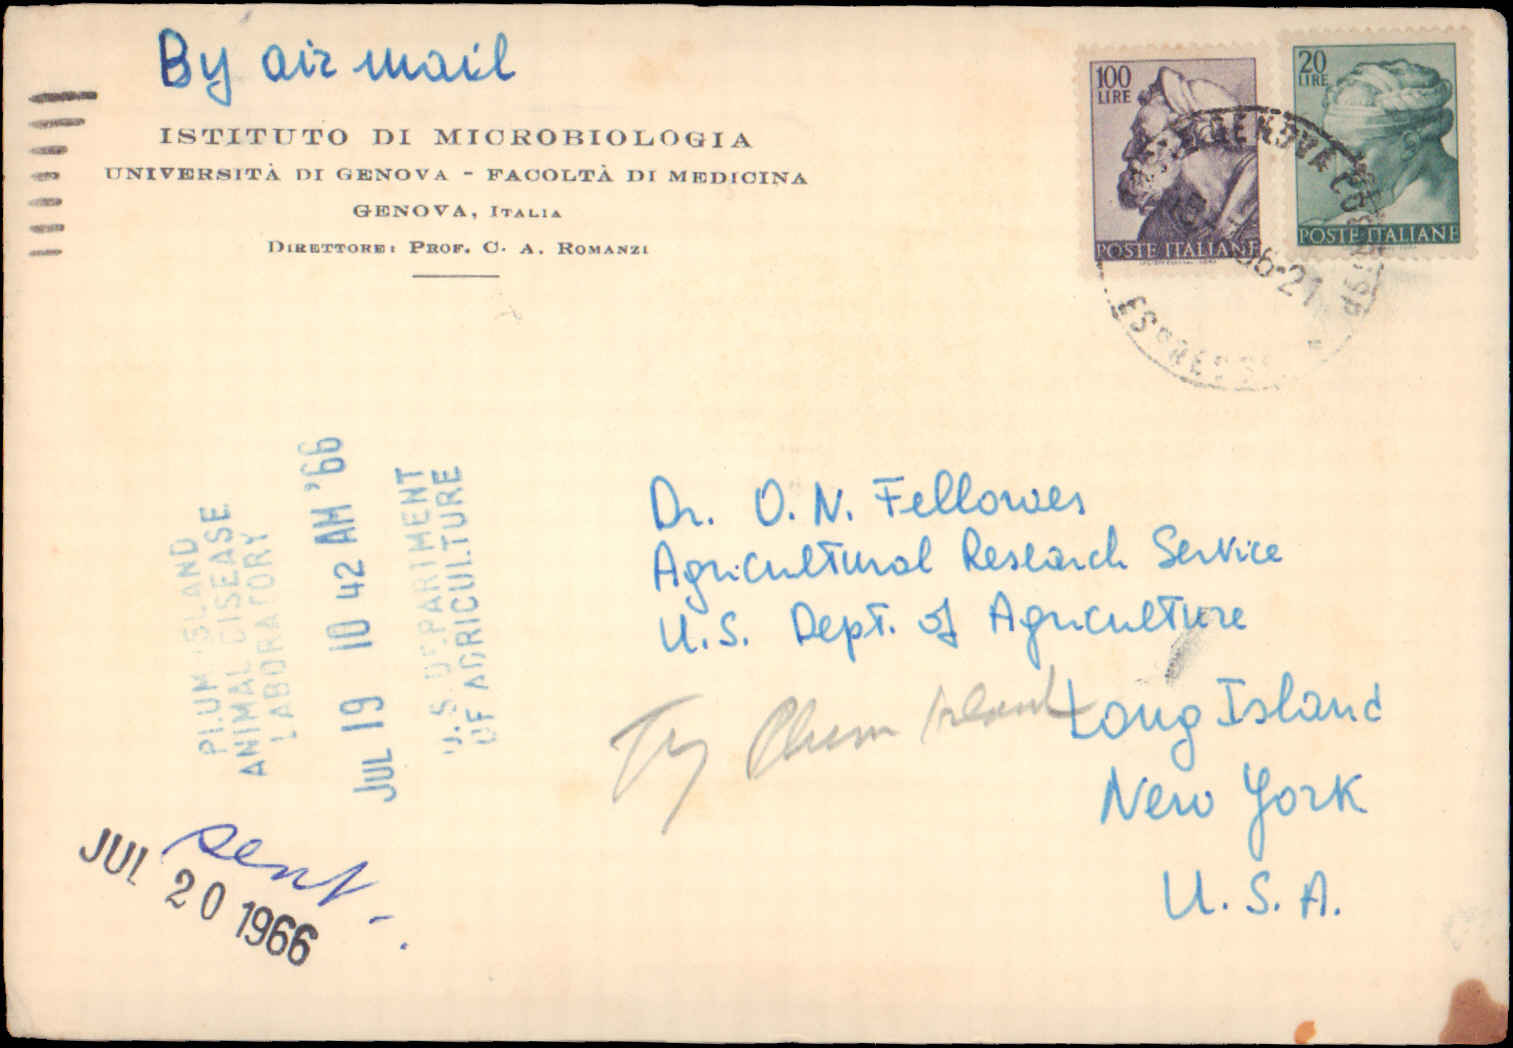 By air mail
ISTITUTO DI MICROBIOLOGIA
UNIVERSITÀ DI GENOVA - FACOLTÀ DI MEDICINA
GENOVA, ITALIA
DIRETTORE: PROF. C. A. ROMANZI
100
LIRE
POSTE ITALIANE
20
LIRE
POSTE ITALIANE
GENOVA
66-21
ESPRESSI
Dr. O. N. Fellowes
Agricultural Research Service
U.S. Dept. of Agriculture
Long Island
New York
U. S. A.
Try Plum Island
PLUM ISLAND
ANIMAL DISEASE
LABORATORY
JUL 19 10 42 AM '66
U.S. DEPARTMENT
OF AGRICULTURE
sent.
JUL 20 1966